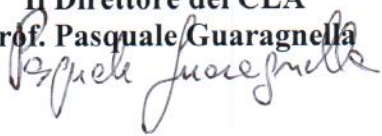 Il Direttore del CLA
Prof. Pasquale Guaragnella
Pasquale Guaragnella